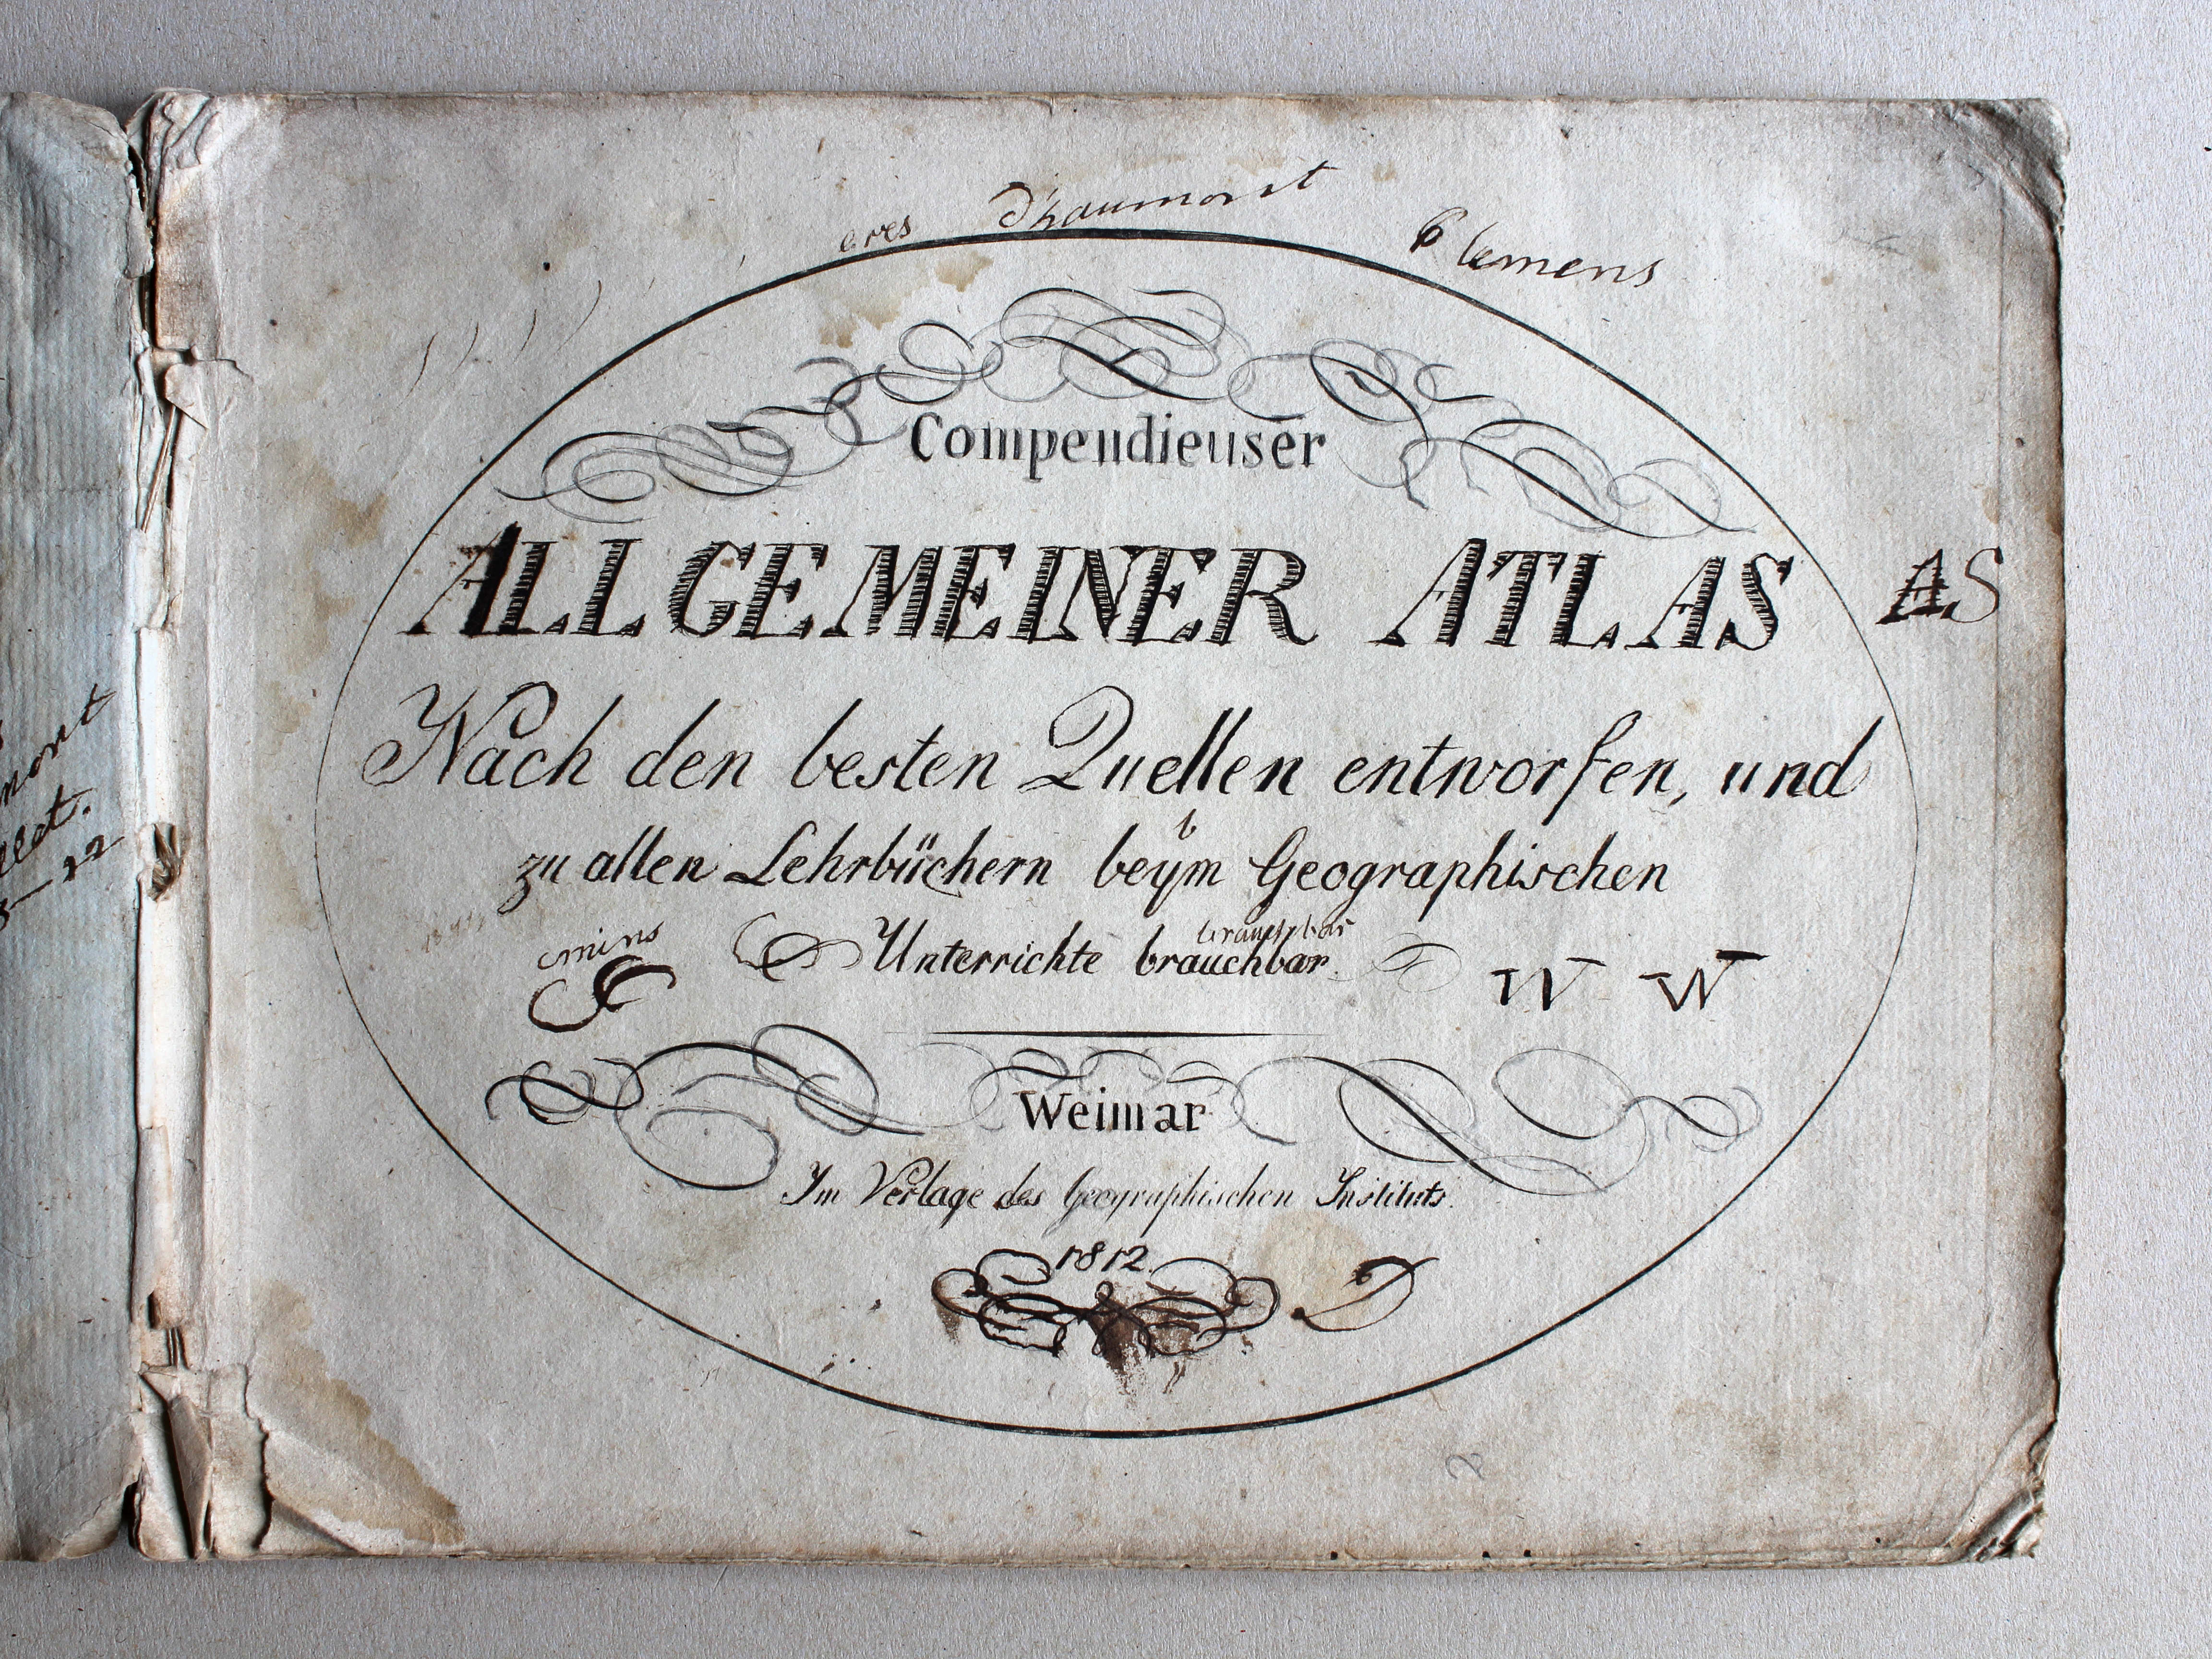 Clemens
Compendieuser
ALLGEMEINER ATLAS AS
Nach den besten Quellen entworfen, und
b
zu allen Lehrbüchern beÿm Geographischen
brauchbar
Unterrichte brauchbar.
W W
Weimar
Im Verlage des Geographischen Instituts.
1812.
D
mont
22